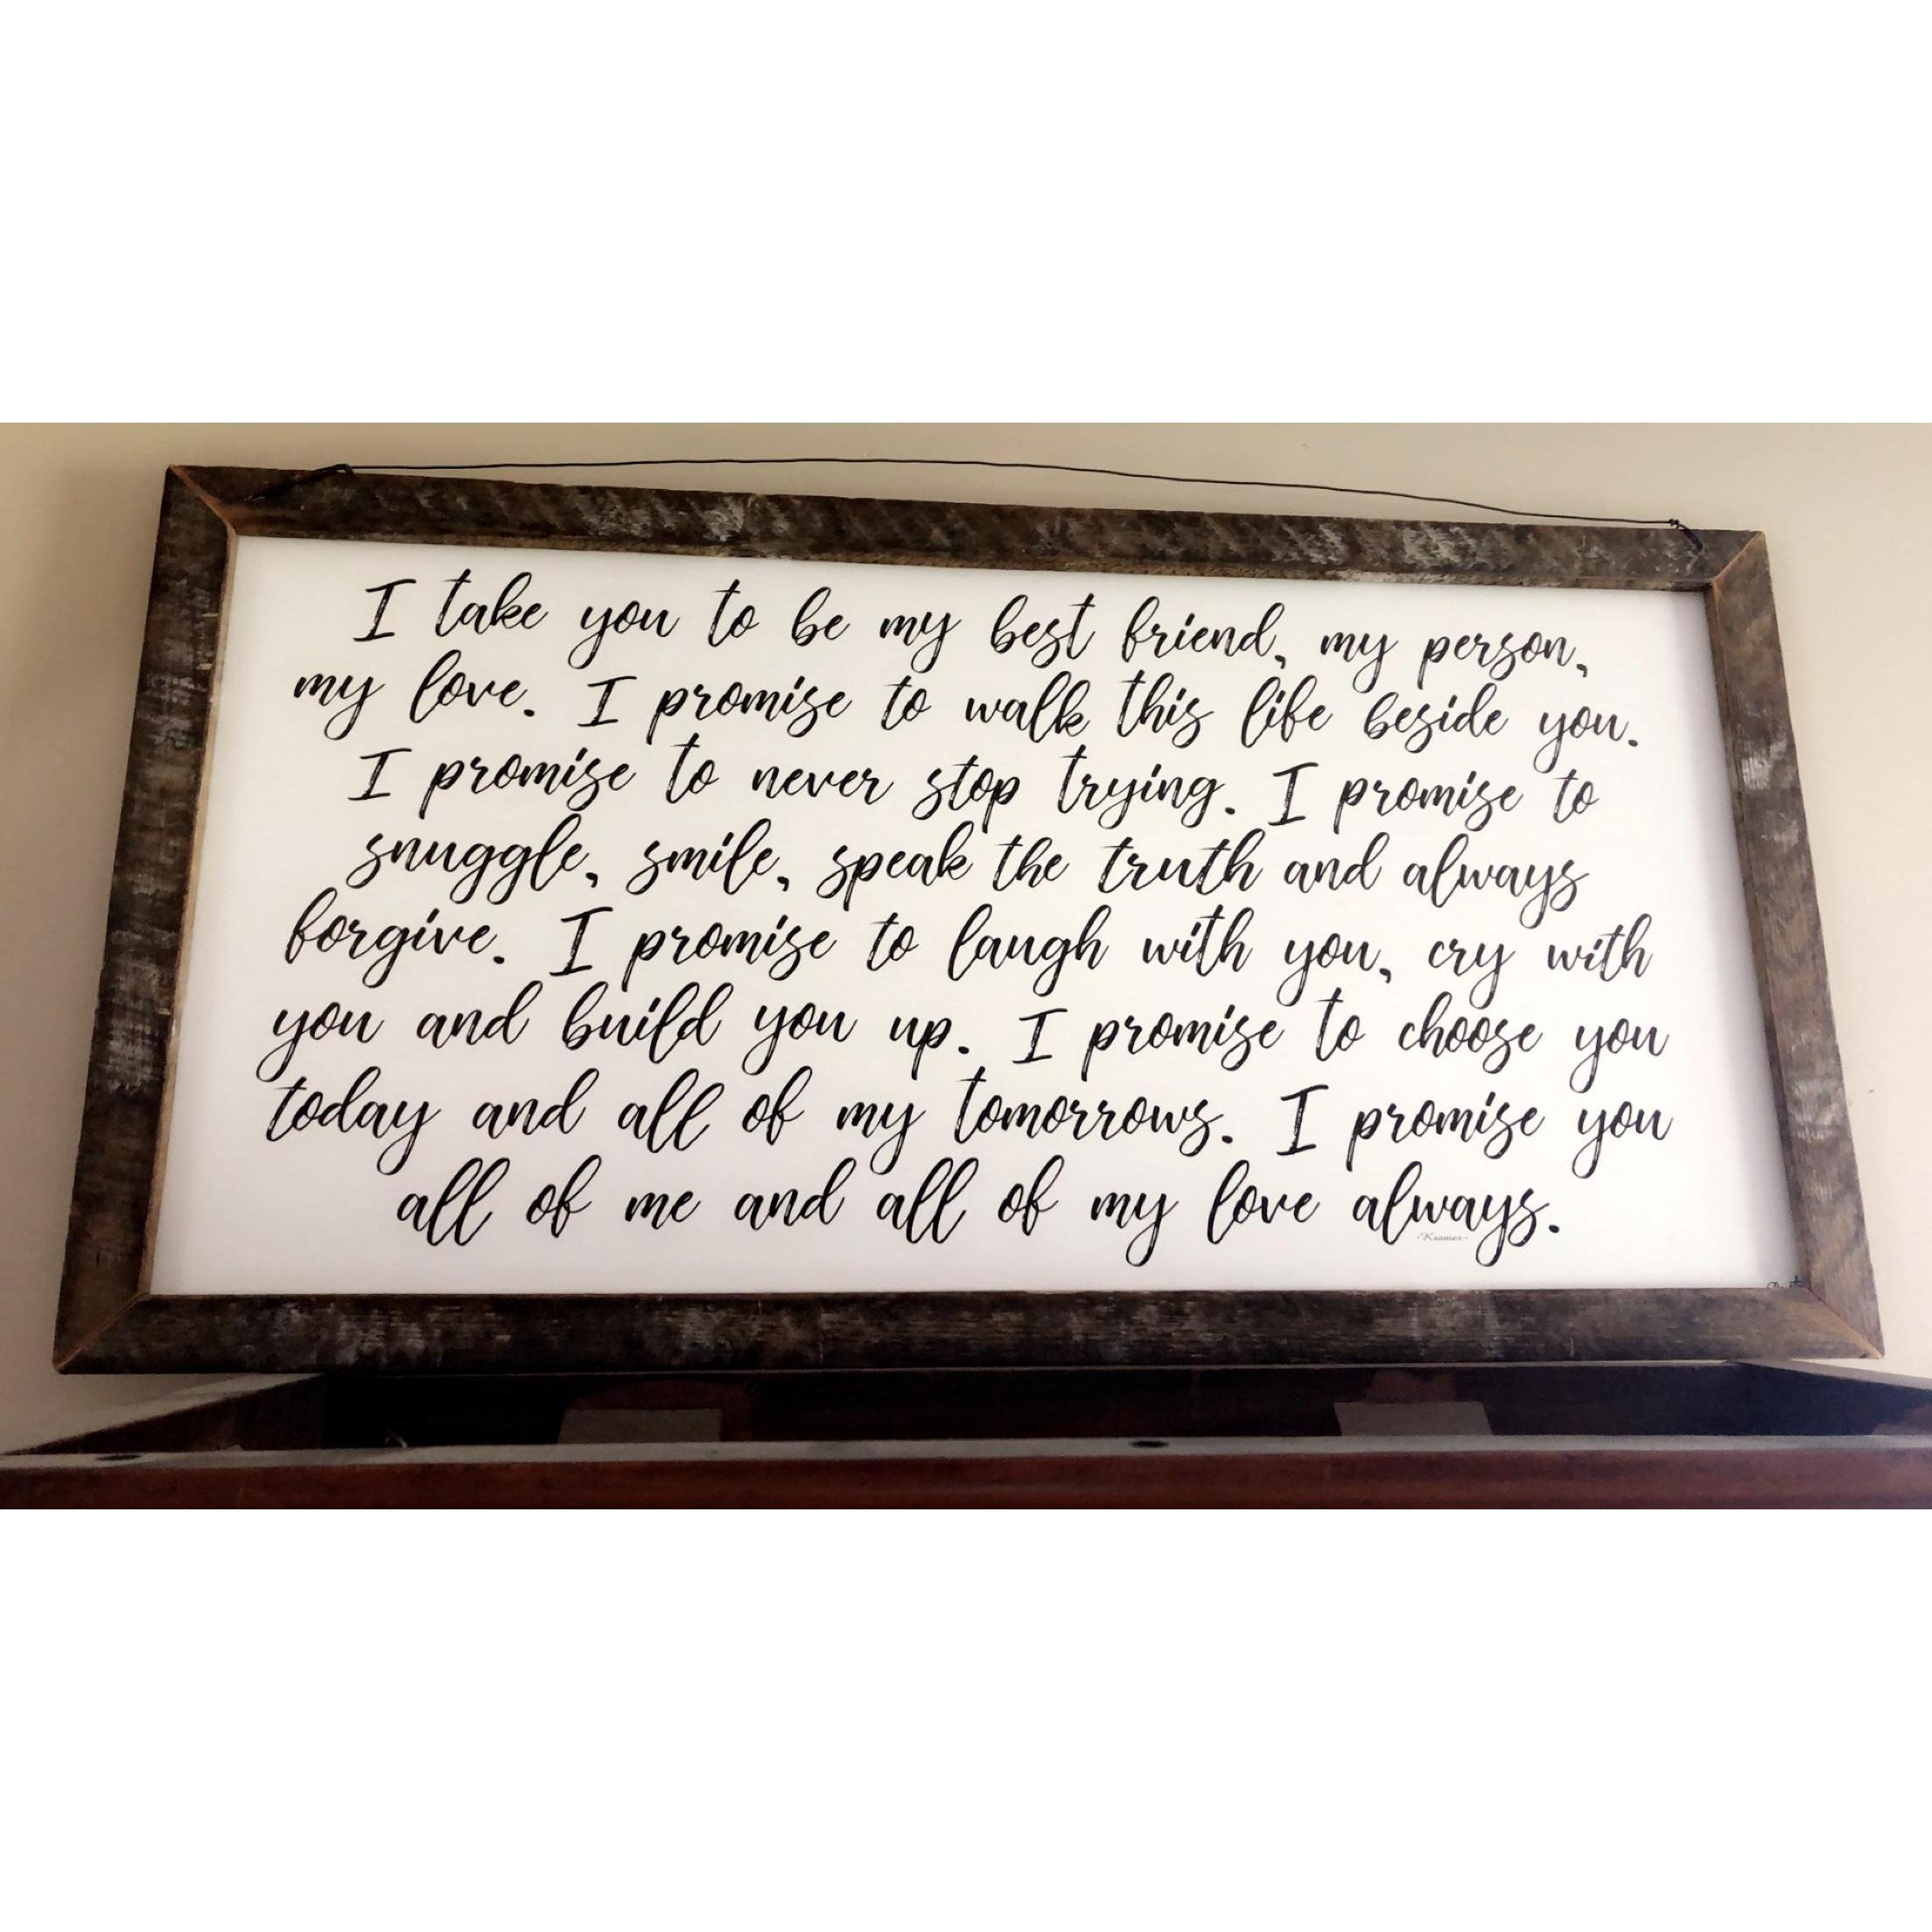 I take you to be my best friend, my person,
my love. I promise to walk this life beside you.
I promise to never stop trying. I promise to
snuggle, smile, speak the truth and always
forgive. I promise to laugh with you, cry with
you and build you up. I promise to choose you
today and all of my tomorrows. I promise you
all of me and all of my love always.
-Kramer-